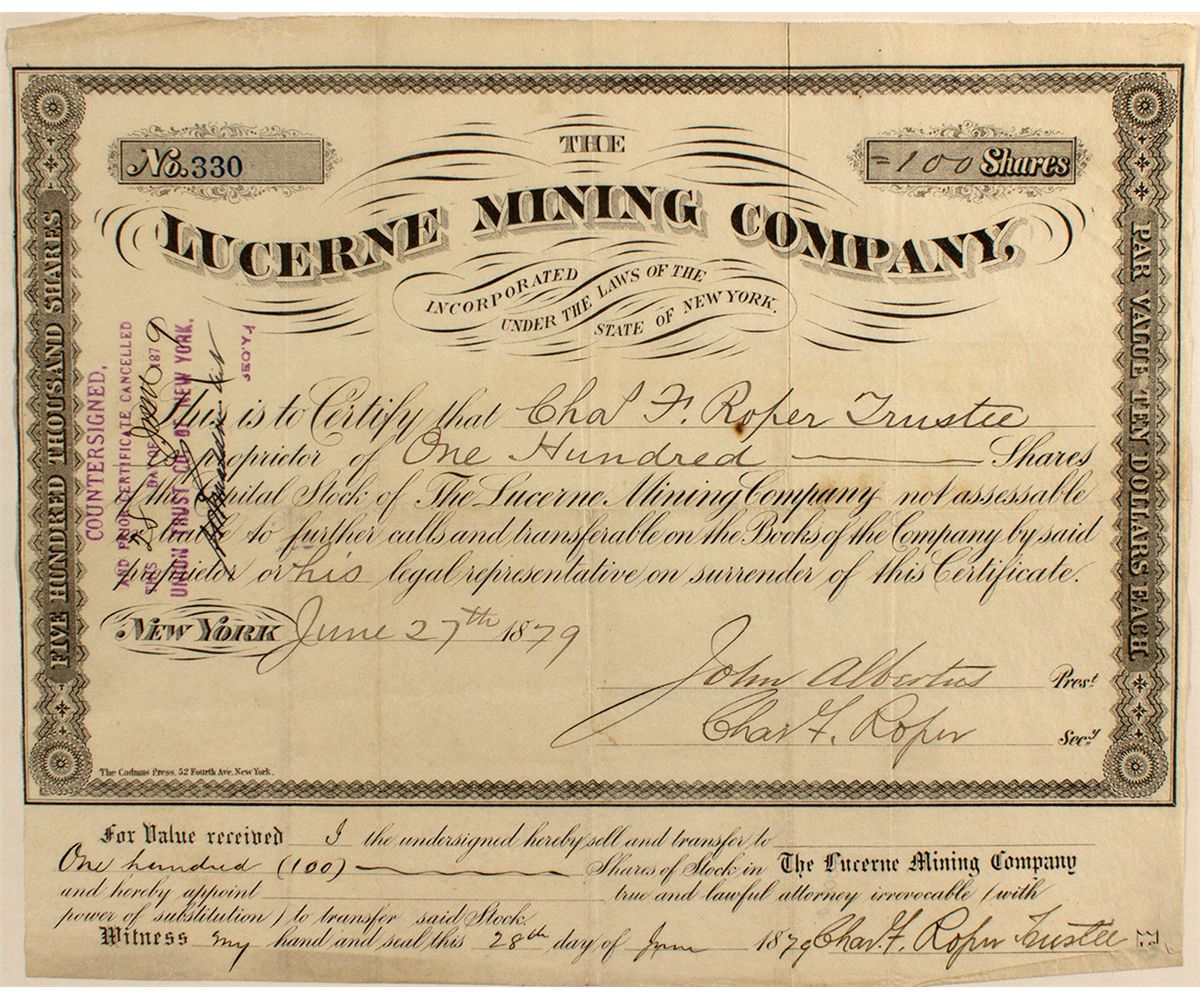 No. 330
THE
=100 Shares
LUCERNE MINING COMPANY,
INCORPORATED
UNDER THE LAWS OF THE
STATE OF NEW YORK.
FIVE HUNDRED THOUSAND SHARES
PAR VALUE TEN DOLLARS EACH
COUNTERSIGNED,
AND PRIOR CERTIFICATE CANCELLED
THIS 28 DAY OF June 1879
UNION TRUST CO. OF NEW YORK.
SEC'Y.
This is to Certify that Chas F. Roper Trustee
is proprietor of One Hundred Shares
of the Capital Stock of The Lucerne Mining Company not assessable
or liable to further calls and transferable on the Books of the Company by said
proprietor or his legal representative on surrender of this Certificate.
NEW YORK June 27th 1879
John Albertus Prest.
Chas. F. Roper Secy.
The Cadmus Press. 52 Fourth Ave. New York.
For Value received I the undersigned hereby sell and transfer to
One hundred (100) Shares of Stock in The Lucerne Mining Company
and hereby appoint true and lawful attorney irrovocable (with
power of substitution) to transfer said Stock.
Witness my hand and seal this 28th day of June 1879 Chas. F. Roper Trustee